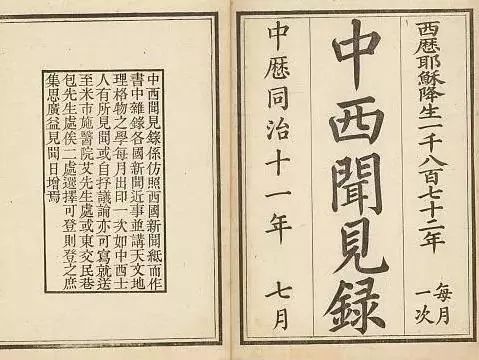 西曆耶穌降生一千八百七十二年
每月
一次
中西聞見錄
中曆同治十一年
七月
中西聞見錄係仿照西國新聞紙而作
書中雜錄各國新聞近事並講天文地
理格物之學每月出印一次如中西士
人有所見聞或自抒議論亦可寫就送
至米市施醫院艾先生處或東交民巷
包先生處俟二處選擇可登則登之庶
集思廣益見聞日增焉